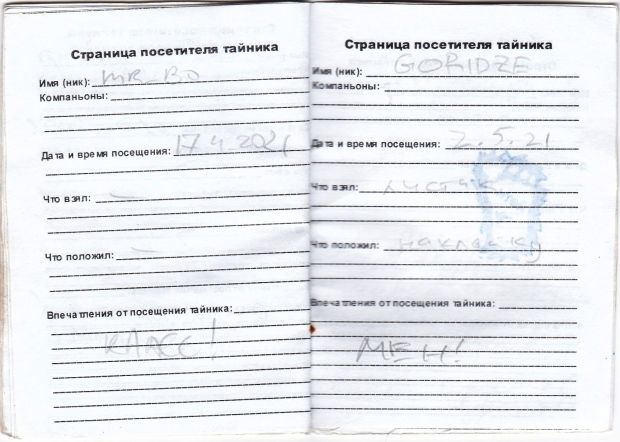 Страница посетителя тайника
Имя (ник): MR_BO
Компаньоны:
Дата и время посещения: 17.4.2021
Что взял: –
Что положил: –
Впечатления от посещения тайника:
КЛАСС!
Страница посетителя тайника
Имя (ник): GORIDZE
Компаньоны:
Дата и время посещения: 2.5.21
Что взял:
Что положил: наклейку
Впечатления от посещения тайника:
МЕН!